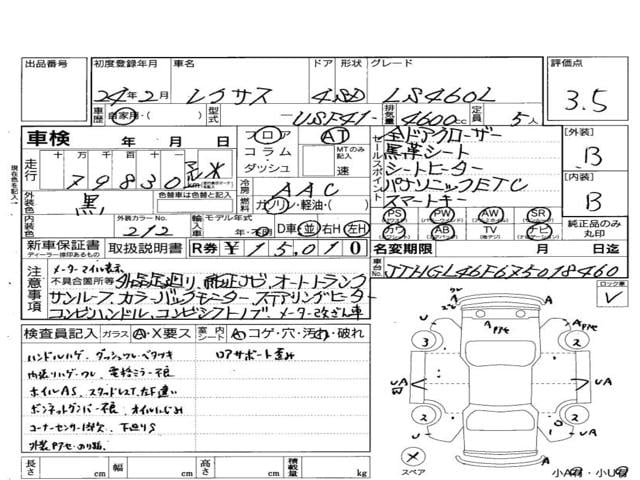 出品番号 初度登録年月 車名 ドア 形状 グレード 評価点
24年2月 レクサス 4 SD LS460L 3.5
車歴 自家用・( ) 型式 USF41- 排気量 4600cc 定員 5人
車検 年 月 日 フロア AT セールスポイント 全ドアクローザー 【外装】
コラム・ MTのみ記入 黒革シート B
走行 十万 万 千 百 十 一 ダッシュ 速 シートヒーター
79830 km マイル 冷房 AAC パナソニックETC 【内装】
外装色 黒 色替車は色替と記入 燃料 ガソリン・軽油・( ) スマートキー B
内装色 外装カラーNo. 212 輸入車 モデル年式 年・不明 D車・並 右H・左H PS PW AW SR
カワ AB TV ナビ 純正品のみ丸印
新車保証書 ディーラー捺印あるもの 取扱説明書 R券 ¥15,010 名変期限 月 日迄
注意事項 メーターマイル表示 車台No. JTHGL46F675018460
不具合箇所等 外品足廻り、純正ナビ、オートトランク ロック車
サンルーフ、カラーバックモニター、ステアリングヒーター
コンビハンドル、コンビシフトノブ、メーター改ざん車
検査員記入 ガラス A・X要ス 室内シート A コゲ・穴・汚れ・破れ
ハンドルハゲ、ダッシュワレ・ベタツキ コアサポート歪み
内張りハゲ・ワレ、電格ミラー不良
ホイルAS、スタッドレス
ボンネットダンパー不良、オイルにじみ
コーナーセンサー 下廻りS
長さ cm 幅 cm 高さ cm 積載量 kg
U A A
2 2
3 2
UA UA
2 2
U U
スペア 小A有・小U有
現在色を記入